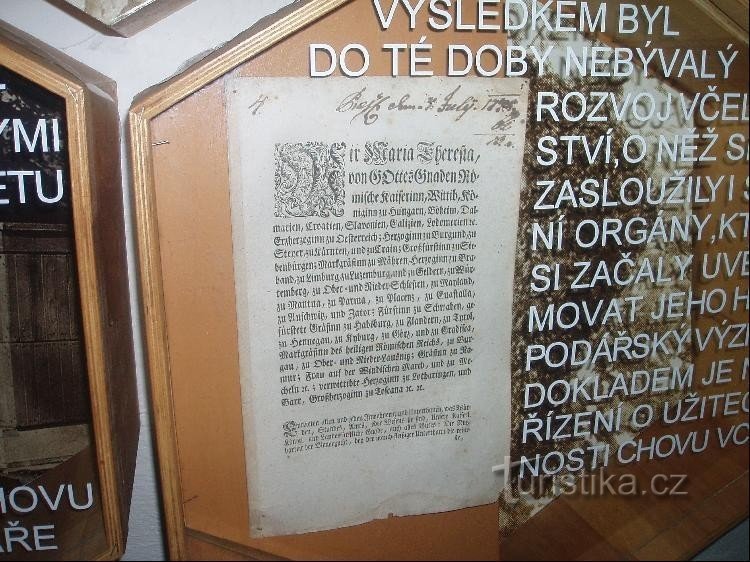 VÝSLEDKEM BYL
DO TÉ DOBY NEBÝVALÝ
ROZVOJ VČEL
STVÍ, O NĚŽ S
ZASLOUŽILY I S
NÍ ORGÁNY, KT
SI ZAČALY UVĚ
MOVAT JEHO H
PODÁŘSKÝ VÝZ
DOKLADEM JE N
ŘÍZENÍ O UŽITEČ
NOSTI CHOVU VČ
ÝMI
ETU
HOVU
AŘE
4.
July
Wir Maria Theresia,
von GOttes Gnaden Rö-
mische Kaiserinn, Wittib, Kö-
niginn zu Hungarn, Böheim, Dal-
matien, Croatien, Slavonien, Galizien, Lodomerien ꝛc.
Erzherzoginn zu Oesterreich; Herzoginn zu Burgund, zu
Steyer, zu Kärnten, und zu Crain; Großfürstinn zu Sie-
benbürgen; Markgräfinn zu Mähren, Herzoginn zu Bra-
band, zu Limburg, zu Luxemburg, und zu Geldern, zu Wür-
temberg, zu Ober- und Nieder-Schlesien, zu Mayland,
zu Mantua, zu Parma, zu Placenz, zu Guastalla,
zu Auschwitz, und Zator; Fürstinn zu Schwaben, ge-
fürstete Gräfinn zu Habsburg, zu Flandern, zu Tyrol,
zu Hennegau, zu Kyburg, zu Görz, und zu Gradisca,
Markgräfinn des heiligen Römischen Reichs, zu Bur-
gau, zu Ober- und Nieder-Laußnitz; Gräfinn zu Na-
mur; Frau auf der Windischen March, und zu Me-
cheln ꝛc. ꝛc. verwittibte Herzoginn zu Lotharingen, und
Baar, Großherzoginn zu Toscana ꝛc. ꝛc.
Entbieten allen und jeden
turistika.cz